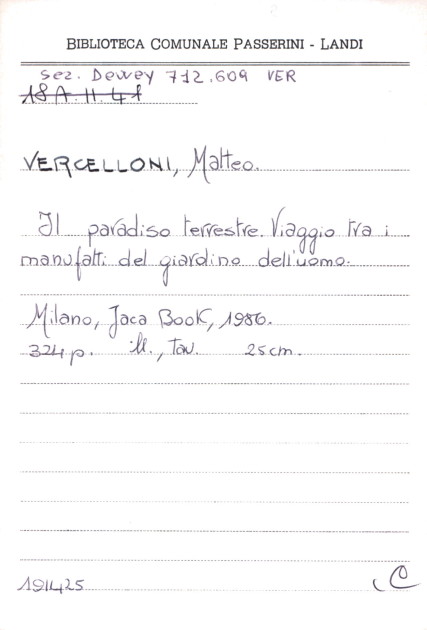 BIBLIOTECA COMUNALE PASSERINI - LANDI
Sez. Dewey 712.609 VER
18 A. II. 41
VERCELLONI, Matteo.
Il paradiso terrestre. Viaggio tra i
manufatti del giardino dell'uomo.
Milano, Jaca Book, 1986.
324 p. ill., tav. 25 cm.
191425
C